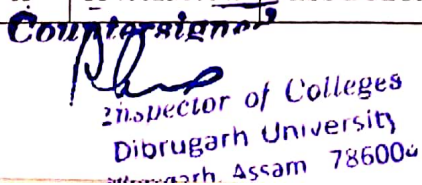 Countersigned
Inspector of Colleges
Dibrugarh University
Assam 786004